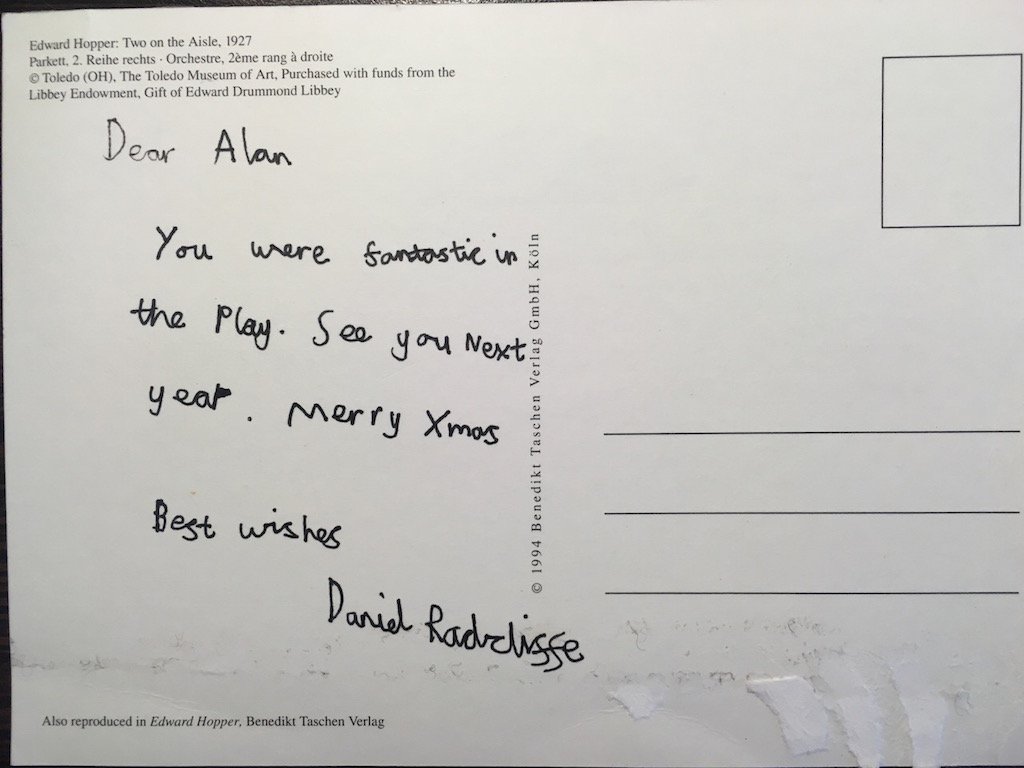 Edward Hopper: Two on the Aisle, 1927
Parkett, 2. Reihe rechts · Orchestre, 2ème rang à droite
© Toledo (OH), The Toledo Museum of Art, Purchased with funds from the
Libbey Endowment, Gift of Edward Drummond Libbey
Dear Alan
You were fantastic in
the Play. See you Next
year. Merry Xmas
Best wishes
Daniel Radcliffe
© 1994 Benedikt Taschen Verlag GmbH, Köln
Also reproduced in Edward Hopper, Benedikt Taschen Verlag